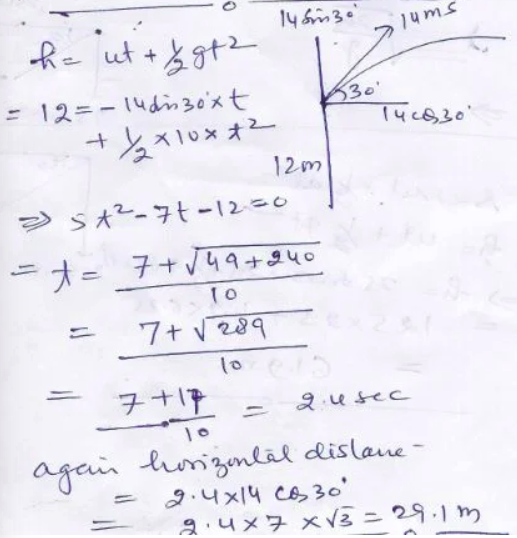 14 sin 30°
14 ms
h = ut + ½ gt²
30°
14 cos 30°
= 12 = - 14 sin 30° x t
+ ½ x 10 x t²
12m
⇒ 5t² - 7t - 12 = 0
= t = 7 + √49 + 240 / 10
= 7 + √289 / 10
= 7 + 17 / 10 = 2.4 sec
again horizontal distane -
= 2.4 x 14 cos 30°
= 2.4 x 7 x √3 = 29.1 m